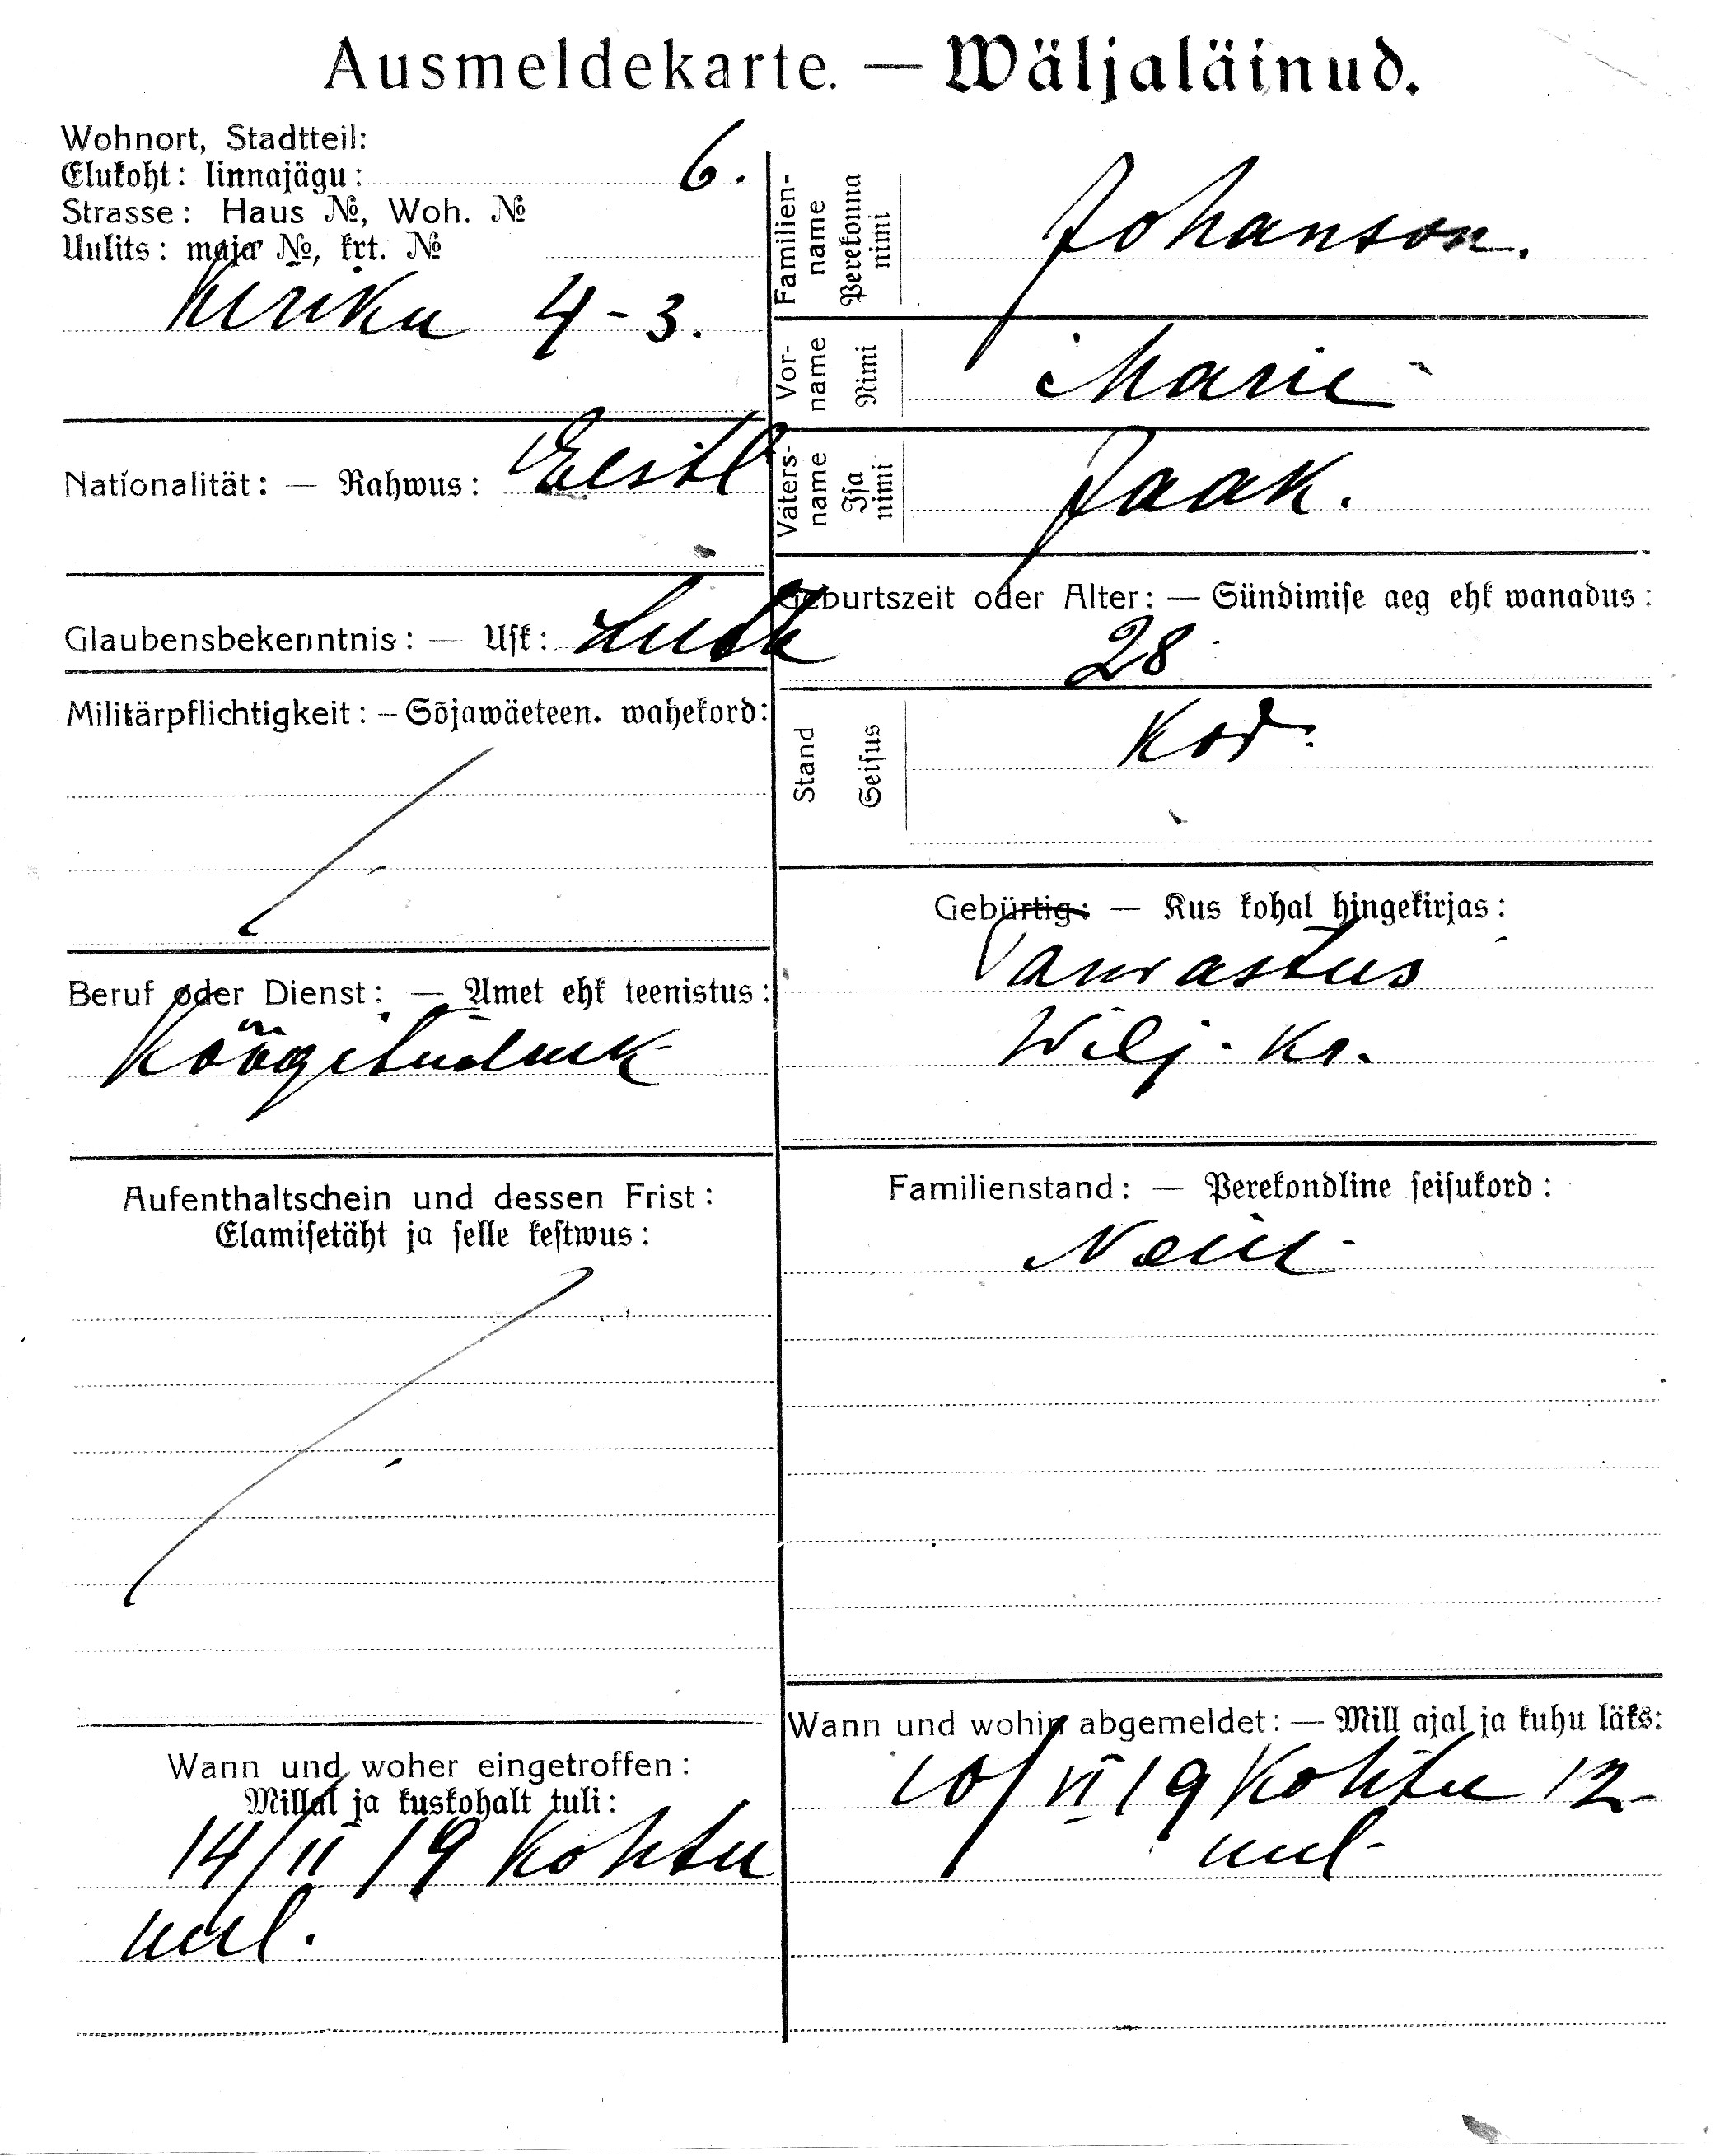 Ausmeldekarte. — Wäljaläinud.
Wohnort, Stadtteil:
Elukoht: linnajägu: 6.
Strasse: Haus №, Woh. №
Uulits: maja №, krt. №
Kiriku 4-3.
Nationalität: — Rahwus: Eestl
Glaubensbekenntnis: — Usk: Luth
Militärpflichtigkeit: — Sõjawäeteen. wahekord:
Beruf oder Dienst: — Amet ehk teenistus:
Köögitüdruk
Aufenthaltschein und dessen Frist:
Elamisetäht ja selle kestwus:
Wann und woher eingetroffen:
Millal ja kuskohalt tuli:
14/II 19 Kohtu
uul.
Familien-
name
Perekonna
nimi
Johanson.
Vor-
name
Nimi
Marie
Vaters-
name
Isa
nimi
Jaak.
Geburtszeit oder Alter: — Sündimise aeg ehk wanadus:
28
Stand
Seisus
Kod.
Gebürtig: — Kus kohal hingekirjas:
Wilj. Kr.
Familienstand: — Perekondline seisukord:
Neiu
Wann und wohin abgemeldet: — Mill ajal ja kuhu läks:
10/VI 19 Kohtu 12
uul.